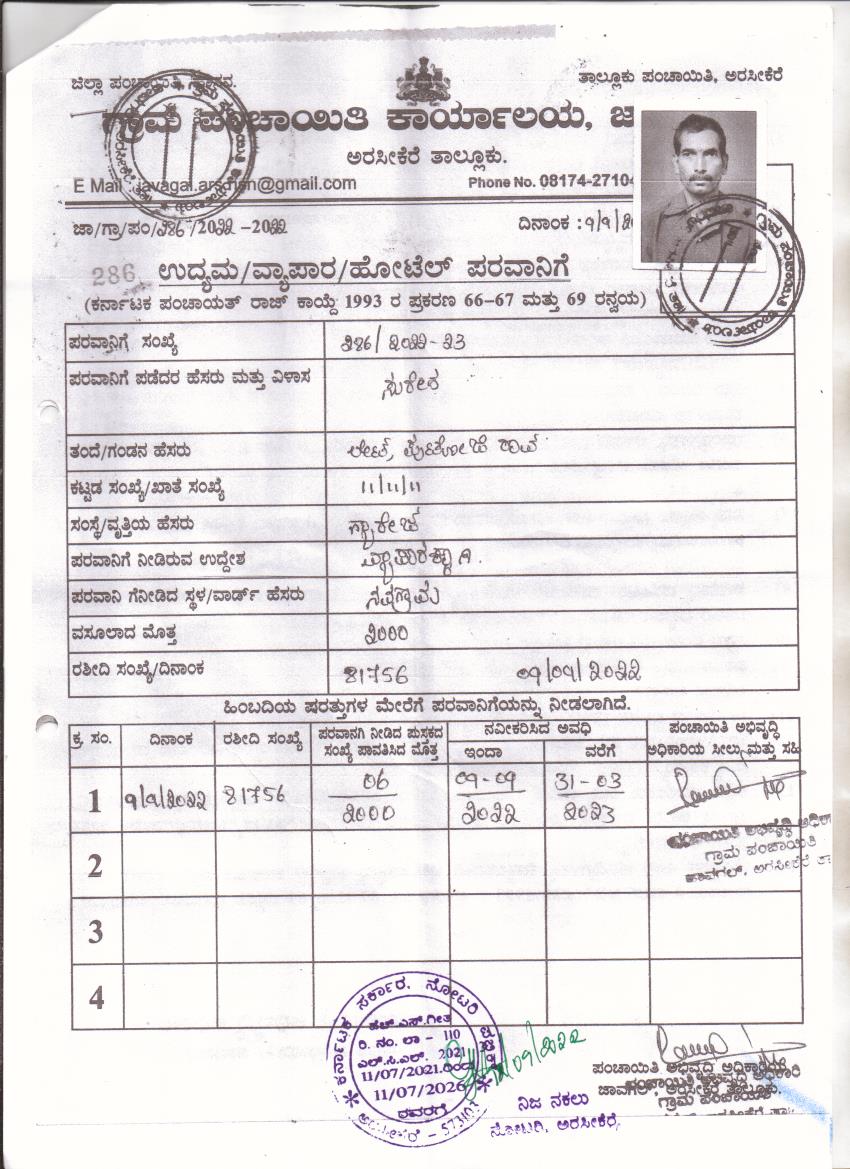 ಜಿಲ್ಲಾ ಪಂಚಾಯಿತಿ, ತಾಲ್ಲೂಕು ಪಂಚಾಯಿತಿ, ಅರಸೀಕೆರೆ
ಗ್ರಾಮ ಪಂಚಾಯಿತಿ ಕಾರ್ಯಾಲಯ,
ಅರಸೀಕೆರೆ ತಾಲ್ಲೂಕು.
E Mail : @gmail.com Phone No. 08174-27104
ಜಾ/ಗ್ರಾ/ಪಂ/286/2022-2022 ದಿನಾಂಕ : 9/9/
286 ಉದ್ಯಮ/ವ್ಯಾಪಾರ/ಹೋಟೆಲ್ ಪರವಾನಿಗೆ
(ಕರ್ನಾಟಕ ಪಂಚಾಯತ್ ರಾಜ್ ಕಾಯ್ದೆ 1993 ರ ಪ್ರಕರಣ 66-67 ಮತ್ತು 69 ರನ್ವಯ)
ಪರವಾನಿಗೆ ಸಂಖ್ಯೆ 286/2022-23
ಪರವಾನಿಗೆ ಪಡೆದರ ಹೆಸರು ಮತ್ತು ವಿಳಾಸ
ತಂದೆ/ಗಂಡನ ಹೆಸರು ಲೇಟ್
ಕಟ್ಟಡ ಸಂಖ್ಯೆ/ಖಾತೆ ಸಂಖ್ಯೆ 11/11/11
ಸಂಸ್ಥೆ/ವೃತ್ತಿಯ ಹೆಸರು
ಪರವಾನಿಗೆ ನೀಡಿರುವ ಉದ್ದೇಶ
ಪರವಾನಿ ಗೆನೀಡಿದ ಸ್ಥಳ/ವಾರ್ಡ್ ಹೆಸರು
ವಸೂಲಾದ ಮೊತ್ತ 2000
ರಶೀದಿ ಸಂಖ್ಯೆ/ದಿನಾಂಕ 81756 09/09/2022
ಹಿಂಬದಿಯ ಷರತ್ತುಗಳ ಮೇರೆಗೆ ಪರವಾನಿಗೆಯನ್ನು ನೀಡಲಾಗಿದೆ.
ಕ್ರ. ಸಂ. ದಿನಾಂಕ ರಶೀದಿ ಸಂಖ್ಯೆ ಪರವಾನಗಿ ನೀಡಿದ ಪುಸ್ತಕದ ಸಂಖ್ಯೆ ಪಾವತಿಸಿದ ಮೊತ್ತ ನವೀಕರಿಸಿದ ಅವಧಿ ಪಂಚಾಯಿತಿ ಅಭಿವೃದ್ಧಿ ಅಧಿಕಾರಿಯ ಸೀಲು ಮತ್ತು ಸಹಿ
ಇಂದಾ ವರೆಗೆ
1 9/9/2022 81756 06 09-09 31-03
2000 2022 2023
ಪಂಚಾಯಿತಿ ಅಭಿವೃದ್ಧಿ
ಗ್ರಾಮ ಪಂಚಾಯಿತಿ
ಜಾವಗಲ್, ಅರಸೀಕೆರೆ
2
3
4
ಕರ್ನಾಟಕ ಸರ್ಕಾರ. ನೋಟರಿ
ಹೆಚ್.ಎಸ್.ಗೀತ
ರಿ. ನಂ. ಲಾ - 110
ಎಲ್.ಸಿ.ಎಲ್. 2021
11/07/2021
11/07/2026
ರವರೆಗೆ
ಅರಸೀಕೆರೆ - 573103
/09/2022
ನಿಜ ನಕಲು
ನೋಟರಿ, ಅರಸೀಕೆರೆ
ಪಂಚಾಯಿತಿ ಅಭಿವೃದ್ಧಿ ಅಧಿಕಾರಿ
ಜಾವಗಲ್, ಅರಸೀಕೆರೆ ತಾಲ್ಲೂಕು.
ಗ್ರಾಮ ಪಂಚಾಯಿತಿ